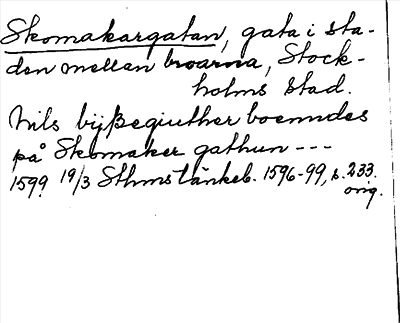 Skomakargatan, gata i sta-
den mellan broarna, Stock-
holms stad.
Nils byßegiuther boenndes
på Skomaker gathun ---
1599 19/3 Sthms tänkeb. 1596-99, s. 233.
orig.